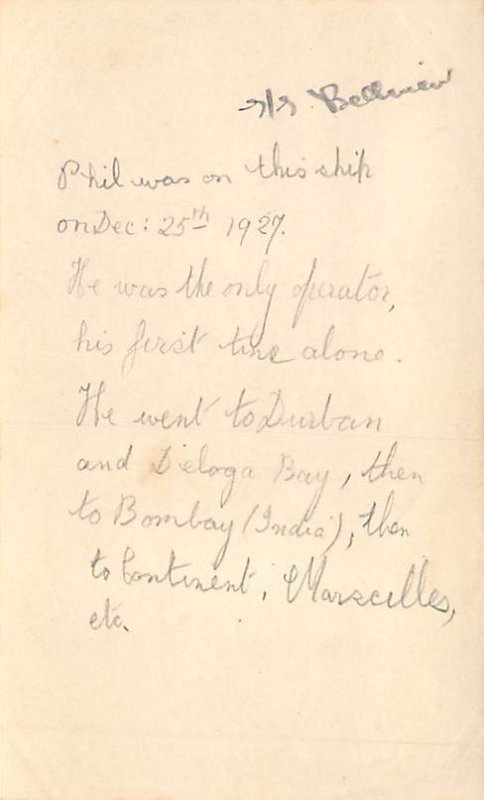 s/s Bellview
Phil was on this ship
on Dec: 25th 1927.
He was the only operator,
his first time alone.
He went to Durban
and Deloga Bay, then
to Bombay (India), then
to Continent, Marseilles,
etc.